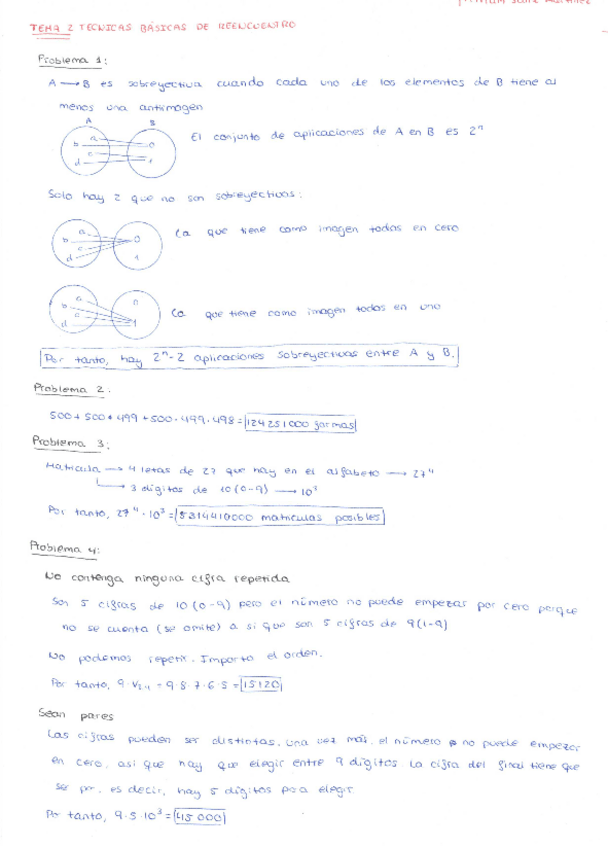 TEMA 2 TECNICAS BÁSICAS DE REENCUENTRO
Problema 1:
A → B es sobreyectiva cuando cada uno de los elementos de B tiene al
menos una antimagen
A B
a
b
c
d
0
1
El conjunto de aplicaciones de A en B es 2ⁿ
Solo hay 2 que no son sobreyectivas:
a
b
c
d
0
1
La que tiene como imagen todas en cero
a
b
c
d
0
1
La que tiene como imagen todos en uno
Por tanto, hay 2ⁿ-2 aplicaciones sobreyectivas entre A y B.
Problema 2:
500 + 500 · 499 + 500 · 499 · 498 = 124251000 formas
Problema 3:
Matricula → 4 letras de 27 que hay en el alfabeto → 27⁴
→ 3 digitos de 10 (0-9) → 10³
Por tanto, 27⁴ · 10³ = 5314410000 matriculas posibles
Problema 4:
No contenga ninguna cifra repetida
Son 5 cifras de 10 (0-9) pero el número no puede empezar por cero porque
no se cuenta (se omite) a si que son 5 cifras de 9 (1-9)
No podemos repetir. Importa el orden.
Por tanto, 9 · 8 · 7 · 6 · 5 = 15120
Sean pares
Las cifras pueden ser distintas. Una vez más, el número no puede empezar
en cero, asi que hay que elegir entre 9 digitos la cifra del final tiene que
ser par, es decir, hay 5 digitos para elegir
Por tanto, 9 · 5 · 10³ = 45000